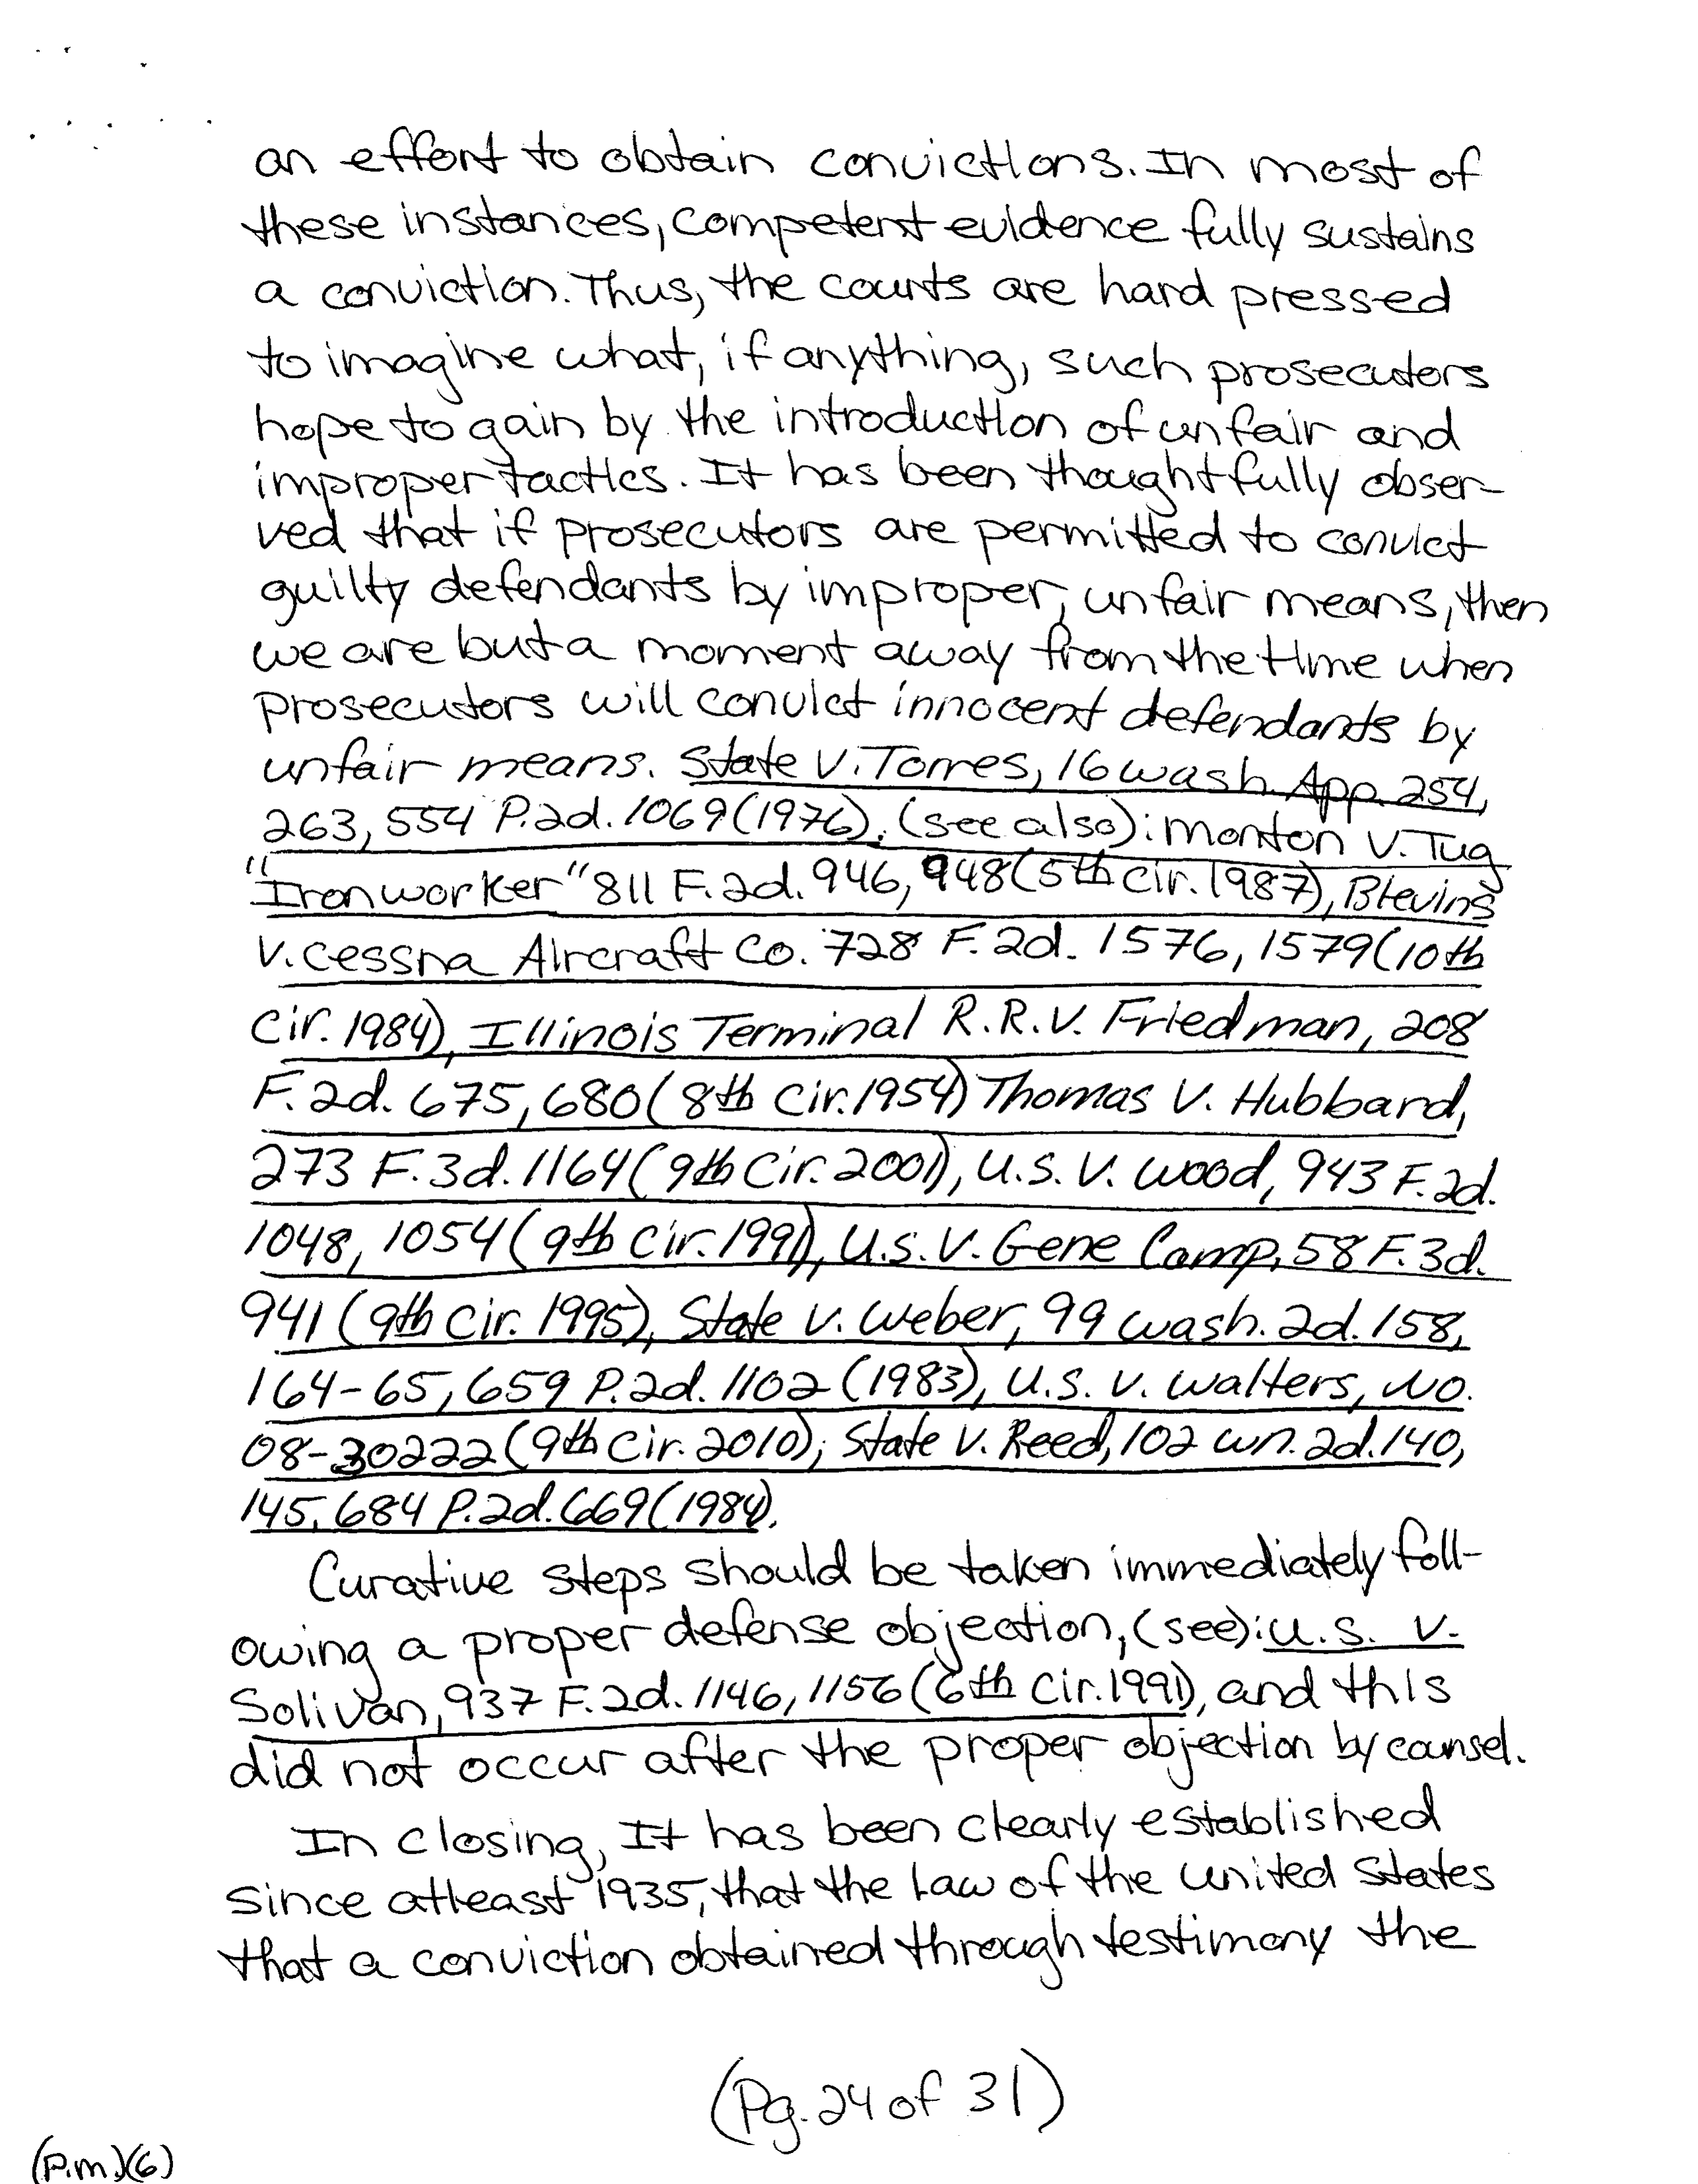 an effort to obtain convictions. In most of
these instances, competent evidence fully sustains
a conviction. Thus, the courts are hard pressed
to imagine what, if anything, such prosecutors
hope to gain by the introduction of unfair and
improper tactics. It has been thoughtfully obser-
ved that if prosecutors are permitted to convict
guilty defendants by improper, unfair means, then
we are but a moment away from the time when
prosecutors will convict innocent defendants by
unfair means. State v. Torres, 16 wash. App. 254,
263, 554 P.2d. 1069 (1976). (see also): monton v. Tug
"Ironworker" 811 F.2d. 946, 948 (5th cir. 1987), Blevins
v. cessna Aircraft Co. 728 F.2d. 1576, 1579 (10th
cir. 1984), Illinois Terminal R.R. v. Friedman, 208
F.2d. 675, 680 (8th cir. 1954) Thomas v. Hubbard,
273 F.3d. 1164 (9th Cir. 2001), U.S. v. wood, 943 F.2d.
1048, 1054 (9th cir. 1991), U.S. v. Gene Camp, 58 F.3d.
941 (9th cir. 1995), State v. weber, 99 wash. 2d. 158,
164-65, 659 P.2d. 1102 (1983), U.S. v. walters, No.
08-30222 (9th cir. 2010); State v. Reed, 102 wn. 2d. 140,
145, 684 P.2d. 669 (1984).
Curative steps should be taken immediately foll-
owing a proper defense objection, (see): U.S. v.
Solivan, 937 F.2d. 1146, 1156 (6th cir. 1991), and this
did not occur after the proper objection by counsel.
In closing, It has been clearly established
since atleast 1935, that the law of the united states
that a conviction obtained through testimony the
(Pg. 24 of 31)
(P.m.)(6)